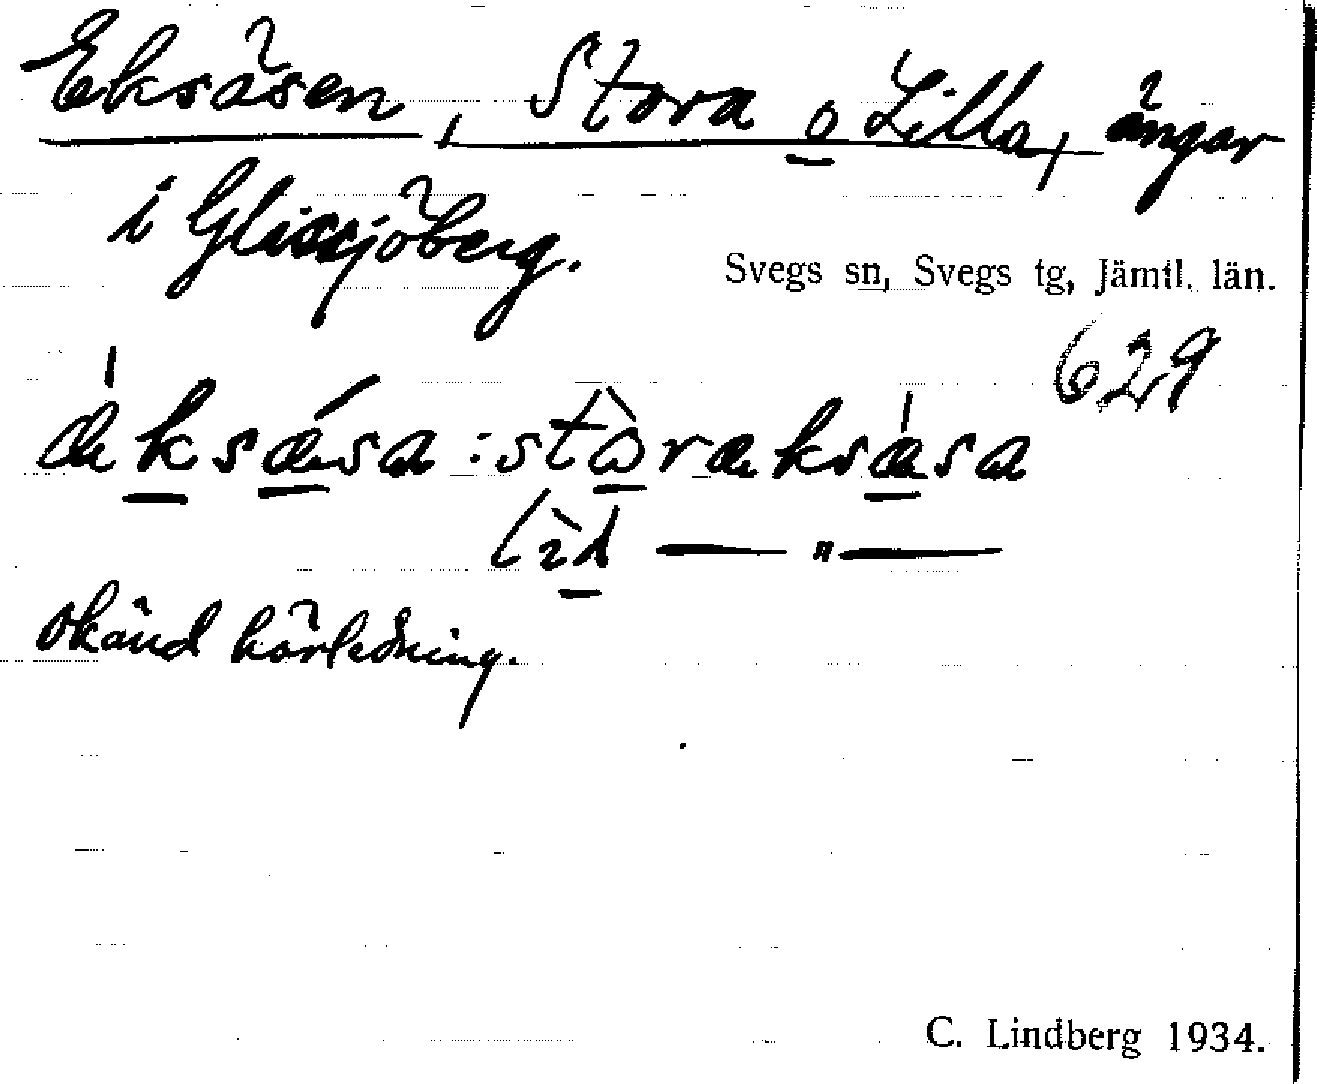 Eksåsen, Stora o Lilla, ängar
i Glissjöberg.
Svegs sn, Svegs tg, Jämtl. län.
629
æksæsa : stòræksæsa
lìl — " —
okänd härledning.
C. Lindberg 1934.